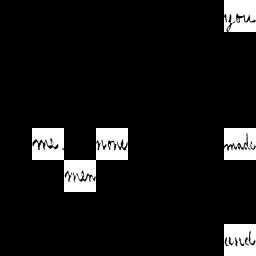 you
me. none made
men
and